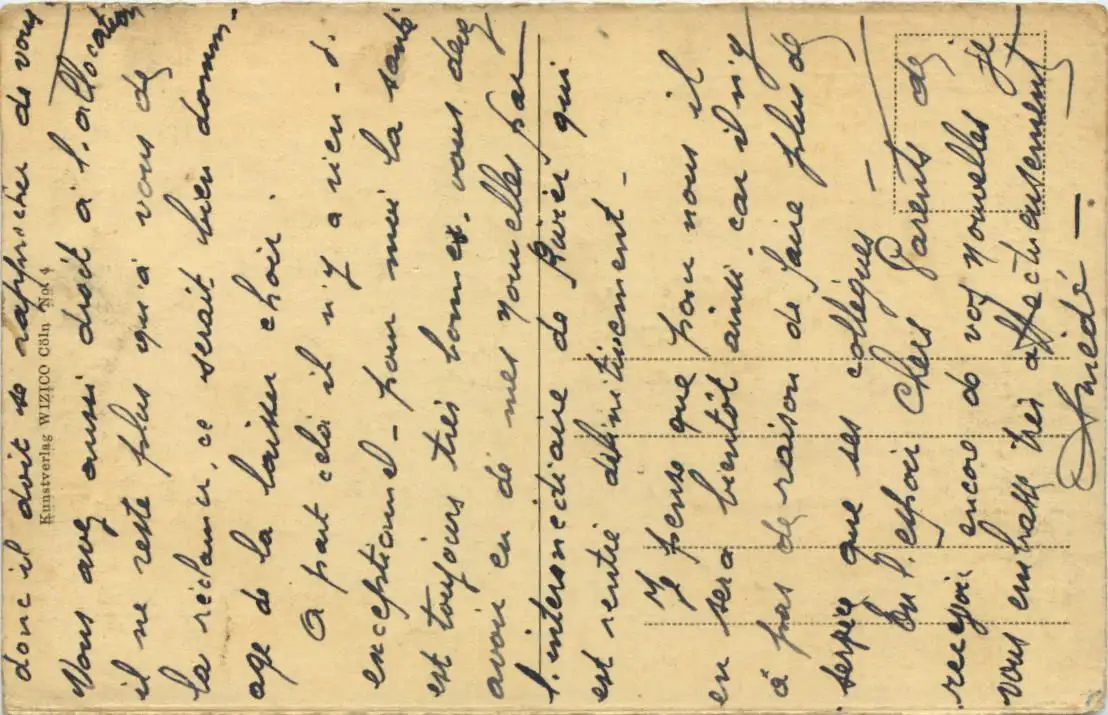 donc il doit se rapprocher de vous.
Vous avez aussi droit à l'allocation
il ne reste plus qu'à vous de
la réclamer, ce serait bien domm-
age de la laisser choir.
A part cela il n'y a rien d'
exceptionnel - pour moi la santé
est toujours très bonne. vous devez
avoir eu de mes nouvelles par
l'intermediaire de qui
est rentré définitivement -
Je pense que pour nous il
en sera bientôt ainsi car il n'y
à pas de raison de faire plus de
que ses collègues -
En l'espoir Chers Parents de
recevoir encore de vos nouvelles je
vous embrasse très affectueusement
Amédé -
Kunstverlag WIZICO Cöln No. 4